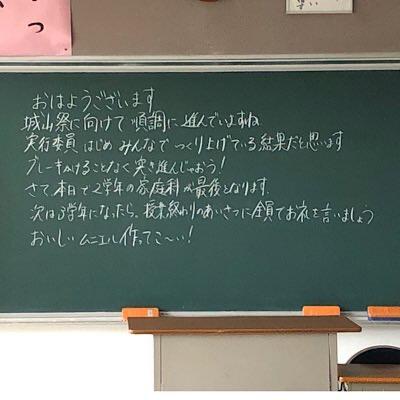 つ
おはようございます
城山祭に向けて順調に進んでいますね
実行委員はじめみんなでつくり上げている結果だと思います
ブレーキかけることなく突き進んじゃおう!
さて、本日で2学年の家庭科が最後となります。
次は3学年になったら。授業終わりのあいさつに全員でお礼を言いましょう
おいしいムニエル作ってこ〜い!